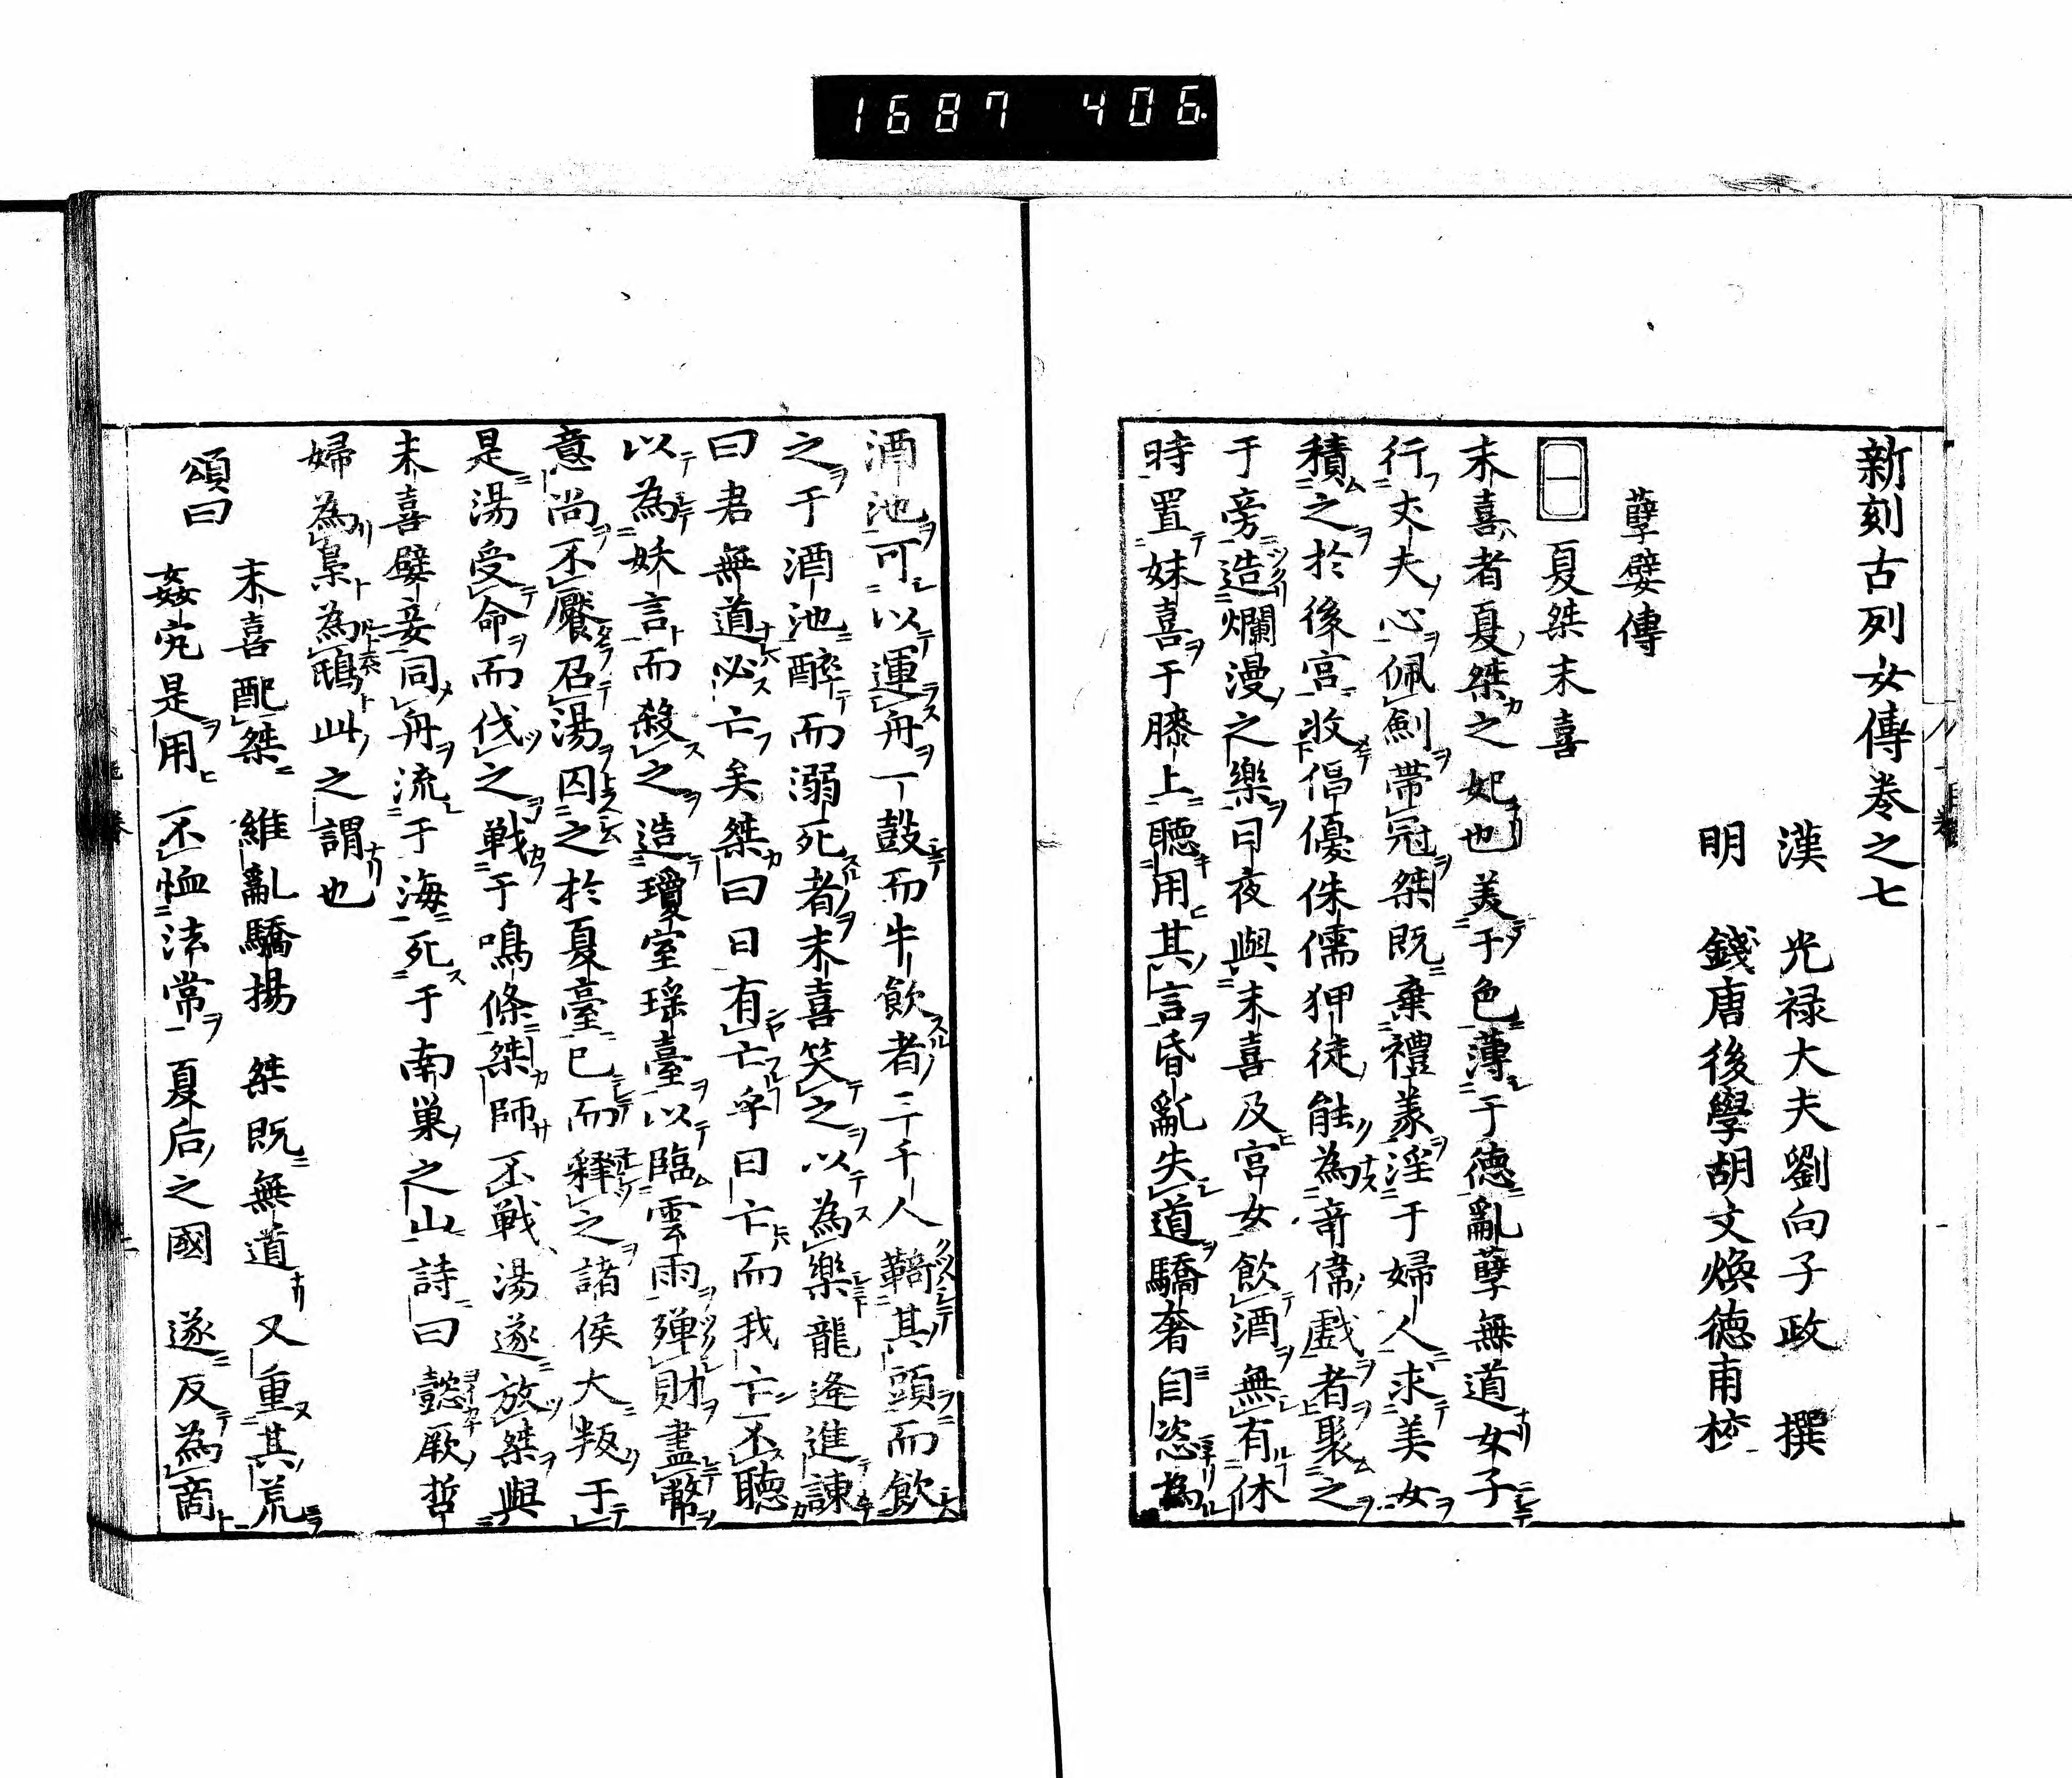 1687 406
新刻古列女傳卷之七
漢 光禄大夫劉向子政 撰
明 錢唐後學胡文煥德甫校
孽嬖傳
一 夏桀末喜
末喜者夏桀之妃也美于色薄于德亂孽無道女子
行丈夫心佩劍帶冠桀既棄禮義淫于婦人求美女
積之於後宮收倡優侏儒狎徒能為竒偉戲者聚之
于旁造爛漫之樂日夜與末喜及宮女飲酒無有休
時置妺喜于膝上聽用其言昏亂失道驕奢自恣為
酒池可以運舟一鼓而牛飲者三千人鞿其頭而飲
之于酒池醉而溺死者末喜笑之以為樂龍逄進諫
曰君無道必亡矣桀曰日有亡乎曰亡而我亡不聽
以為妖言而殺之造瓊室瑶臺以臨雲雨殫財盡幣
意尚不饜召湯囚之於夏臺已而釋之諸侯大叛于
是湯受命而伐之戰于鳴條桀師不戰湯遂放桀與
末喜嬖妾同舟流于海死于南巢之山詩曰懿厥哲
婦為梟為鴟此之謂也
頌曰
末喜配桀 維亂驕揚 桀既無道 又重其荒
姦宄是用 不恤法常 夏后之國 遂反為商